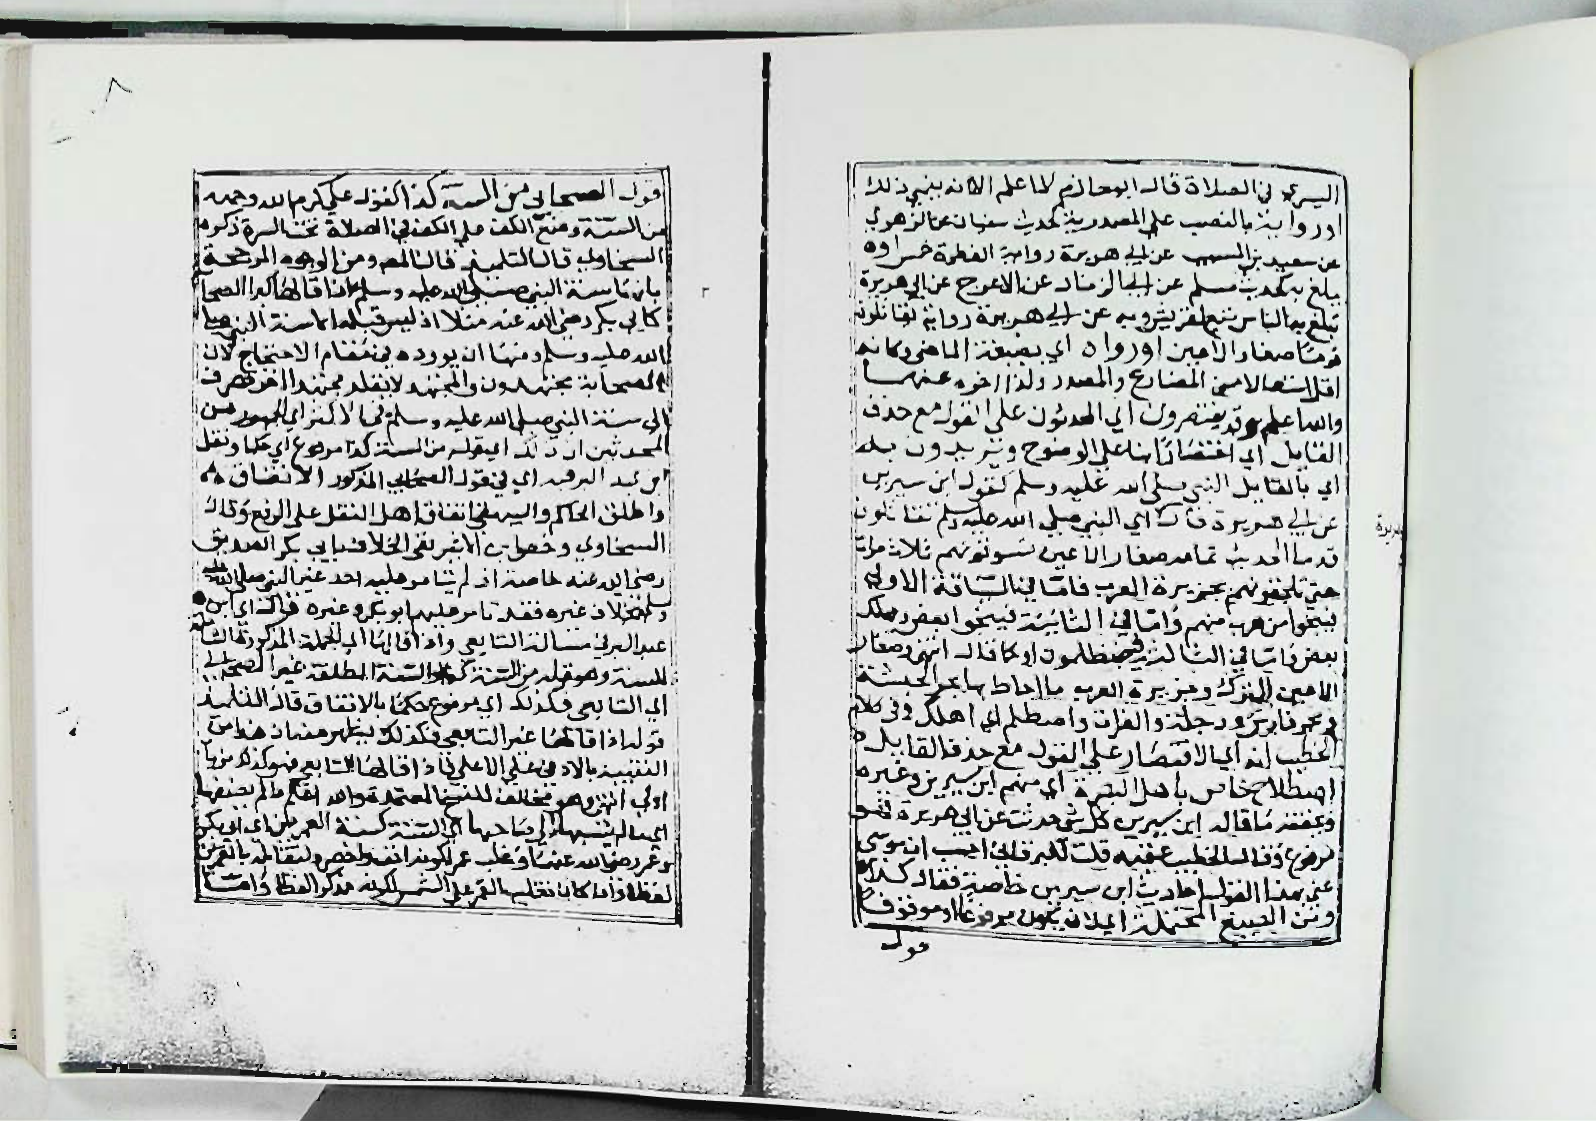 اليسرى في الصلاة قال ابو حازم لا اعلم الا انه ينمي ذلك
او رواية بالنصب على المصدرية كحديث سفيان عن الزهري
عن سعيد بن المسيب عن ابي هريرة رواية الفطرة خمس اوه
يبلغ به كحديث مسلم عن ابي الزناد عن الاعرج عن ابي هريرة
تبلغ به الناس تبع لقريش وبه عن ابي هريرة رواية تقاتلون
قوما صغار الاعين او رواه اي بصيغة الماضي وكانه
اقل استعمالا من المضارع والمصدر ولذا اخره عنهما
والله اعلم وقد يقتصرون اي المحدثون على القول مع حذف
القايل اي اقتصارا بناء على الوضوح ويريدون به
اي بالقايل النبي صلى الله عليه وسلم كقول ابن سيرين
عن ابي هريرة قال اي النبي صلى الله عليه وسلم تقاتلون
قدما الحديث تمامه صغار الاعين تسوقونهم ثلاث مرات
حتى تلحقونهم بجزيرة العرب فاما في الساقة الاولى
فينجوا من هرب منهم واما في الثانية فينجوا بعض ويهلك
بعض واما في الثالثة فيصطلمون او كما قال انتهى وصغار
الاعين الترك وجزيرة العرب ما احاط بها بحر الحبشة
وبحر فارس ودجلة والفرات واصطلم اي اهلك وفي كلام
الخطيب انه اي الاقتصار على القول مع حذف القايل
اصطلاح خاص باهل البصرة اي منهم ابن سيرين وغيره
وعقفه ما قال ابن سيرين كل شي حدثت عن ابي هريرة فهو
مرفوع وقال الخطيب عقبه قلت للبرقاني احسب ان موسى
عني بهذا القول احاديث ابن سيرين خاصة فقال كذا
ومن الصيغ المحتملة اي لان يكون مرفوعا او موقوفا
قول
هريرة
قول الصحابي من السنة كذا كقول علي كرم الله وجهه
من السنة وضع الكف على الكف في الصلاة تحت السرة ذكره
السخاوي قال التلميذ قال المص ومن الوجوه المرجحة
بانها سنة النبي صلى الله عليه وسلم ما اذا قالها اكبر الصحابة
كابي بكر رضي الله عنه مثلا اذ ليس قبله الا سنة النبي صلى
الله عليه وسلم ومنها ان يورده في مقام الاحتجاج لان
الصحابة مجتهدون والمجتهد لا يقلد مجتهدا اخر فصرف
الى سنة النبي صلى الله عليه وسلم فالاكثر اي الجمهور من
المحدثين ان ذلك اي قوله من السنة كذا مرفوع اي حكما ونقل
ابن عبد البر فيه اي في قول الصحابي المذكور الاتفاق
واطلق الحاكم والبيهقي اتفاق اهل النقل على الرفع وقال
السخاوي وخص ابن الاثير نفي الخلاف بابي بكر الصديق
رضي الله عنه خاصة اذ لم يتامر عليه احد غير النبي صلى الله عليه
وسلم بخلاف غيره فقد تامر عليهم ابو بكر وغيره قال اي ابن
عبد البر في مسالة التابعي واذا قالها اي الجملة المذكورة الشاملة
للسنة وهو قوله من السنة كذا والسنة المطلقة غير الصحابي
اي التابعي فكذلك اي مرفوع حكما بالاتفاق قال التلميذ
قوله اذا قالها غير التابعي فكذلك يظهر معناه هذا من
التنبيه بالادنى على الاعلى فاذا قالها التابعي فهو كذلك من باب
اولى انتهى وهو مخالف للنسخ المعتمدة والله اعلم ما لم يضفها
اي ما لم ينسبها الى صاحبها اي السنة كسنة العمرين اي ابي بكر
وعمر رضي الله عنهما وغلب عمر لكونه اخف واخصر وليقابل بالقمرين
لفظا اذ انما كان تغليب القمر على الشمس لكونه مذكرا لفظا واما